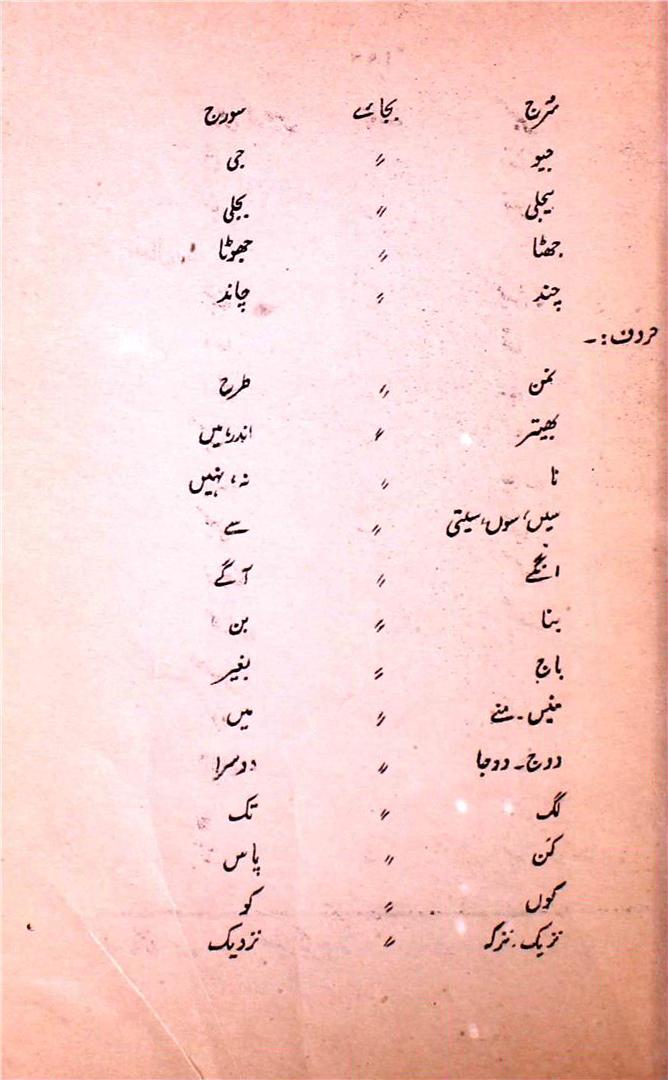 سُرج بجائے سورج
جیو 〃 جی
بیجلی 〃 بجلی
جھٹا 〃 جھوٹا
چند 〃 چاند
حروف :۔
نمن 〃 طرح
بھیتر 〃 اندر، میں
نا 〃 نہ، نہیں
سیں، سوں، سیتی 〃 سے
انگے 〃 آگے
بنا 〃 بن
باج 〃 بغیر
منیں۔ منے 〃 میں
دوج۔ دوجا 〃 دوسرا
لگ 〃 تک
کن 〃 پاس
کوں 〃 کو
نزیک۔ 〃 نزدیک